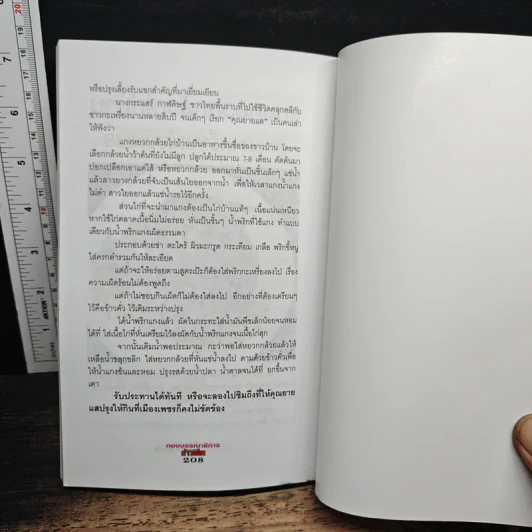 หรือปรุงเลี้ยงรับแขกสำคัญที่มาเยี่ยมเยียน
นางกระแสร์ กาฬดิษฐ์ ชาวไทยพื้นราบที่ไปใช้ชีวิตคลุกคลีกับ
ชาวกะเหรี่ยงนานหลายสิบปี จนเด็กๆ เรียก "คุณยายแส" เป็นคนเล่า
ให้ฟังว่า
แกงหยวกกล้วยไก่บ้านเป็นอาหารขึ้นชื่อของชาวบ้าน โดยจะ
เลือกกล้วยน้ำว้าต้นที่ยังไม่มีลูก ปลูกได้ประมาณ 7-8 เดือน ตัดต้นมา
ปอกเปลือกเอาแต่ไส้ หรือหยวกกล้วย ออกมาหั่นเป็นชิ้นเล็กๆ แช่น้ำ
แล้วสาวยางกล้วยที่จับเป็นเส้นใยออกจากน้ำ เพื่อให้เวลาแกงน้ำแกง
ไม่ดำ สาวใยออกแล้วแช่น้ำรอไว้อีกครั้ง
ส่วนไก่ที่จะนำมาแกงต้องเป็นไก่บ้านแท้ๆ เนื้อแน่นเหนียว
หากใช้ไก่ตลาดเนื้อนิ่มไม่อร่อย หั่นเป็นชิ้นๆ น้ำพริกที่ใช้แกง ทำแบบ
เดียวกับน้ำพริกแกงเผ็ดธรรมดา
ประกอบด้วยข่า ตะไคร้ ผิวมะกรูด กระเทียม เกลือ พริกขี้หนู
ใส่ครกตำรวมกันให้ละเอียด
แต่ถ้าจะให้อร่อยตามสูตรเป๊ะก็ต้องใส่พริกกะเหรี่ยงลงไป เรื่อง
ความเผ็ดร้อนไม่ต้องพูดถึง
แต่ถ้าไม่ชอบกินเผ็ดก็ไม่ต้องใส่ลงไป อีกอย่างที่ต้องเตรียมๆ
ไว้คือข้าวคั่ว ไว้เติมระหว่างปรุง
ได้น้ำพริกแกงแล้ว ผัดในกระทะใส่น้ำมันพืชเล็กน้อยจนหอม
ได้ที่ ใส่เนื้อไก่ที่หั่นเตรียมไว้ลงผัดกับน้ำพริกแกงจนเนื้อไก่สุก
จากนั้นเติมน้ำพอประมาณ กะว่าพอใส่หยวกกล้วยแล้วให้
เหลือน้ำขลุกขลิก ใส่หยวกกล้วยที่หั่นแช่น้ำลงไป ตามด้วยข้าวคั่วเพื่อ
ให้น้ำแกงข้นและหอม ปรุงรสด้วยน้ำปลา น้ำตาลจนได้ที่ ยกขึ้นจาก
เตา
รับประทานได้ทันที หรือจะลองไปชิมถึงที่ให้คุณยาย
แสปรุงให้กินที่เมืองเพชรก็คงไม่ขัดข้อง
กองบรรณาธิการ
ข่าวสด
208